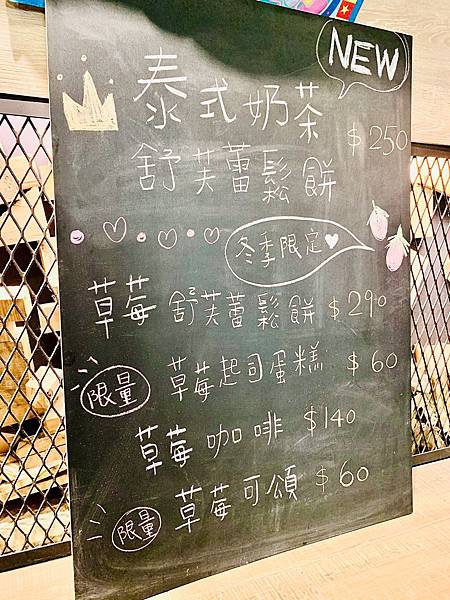 NEW
泰式奶茶
舒芙蕾鬆餅 $250
冬季限定
草莓舒芙蕾鬆餅 $290
限量 草莓起司蛋糕 $60
草莓咖啡 $140
限量 草莓可頌 $60